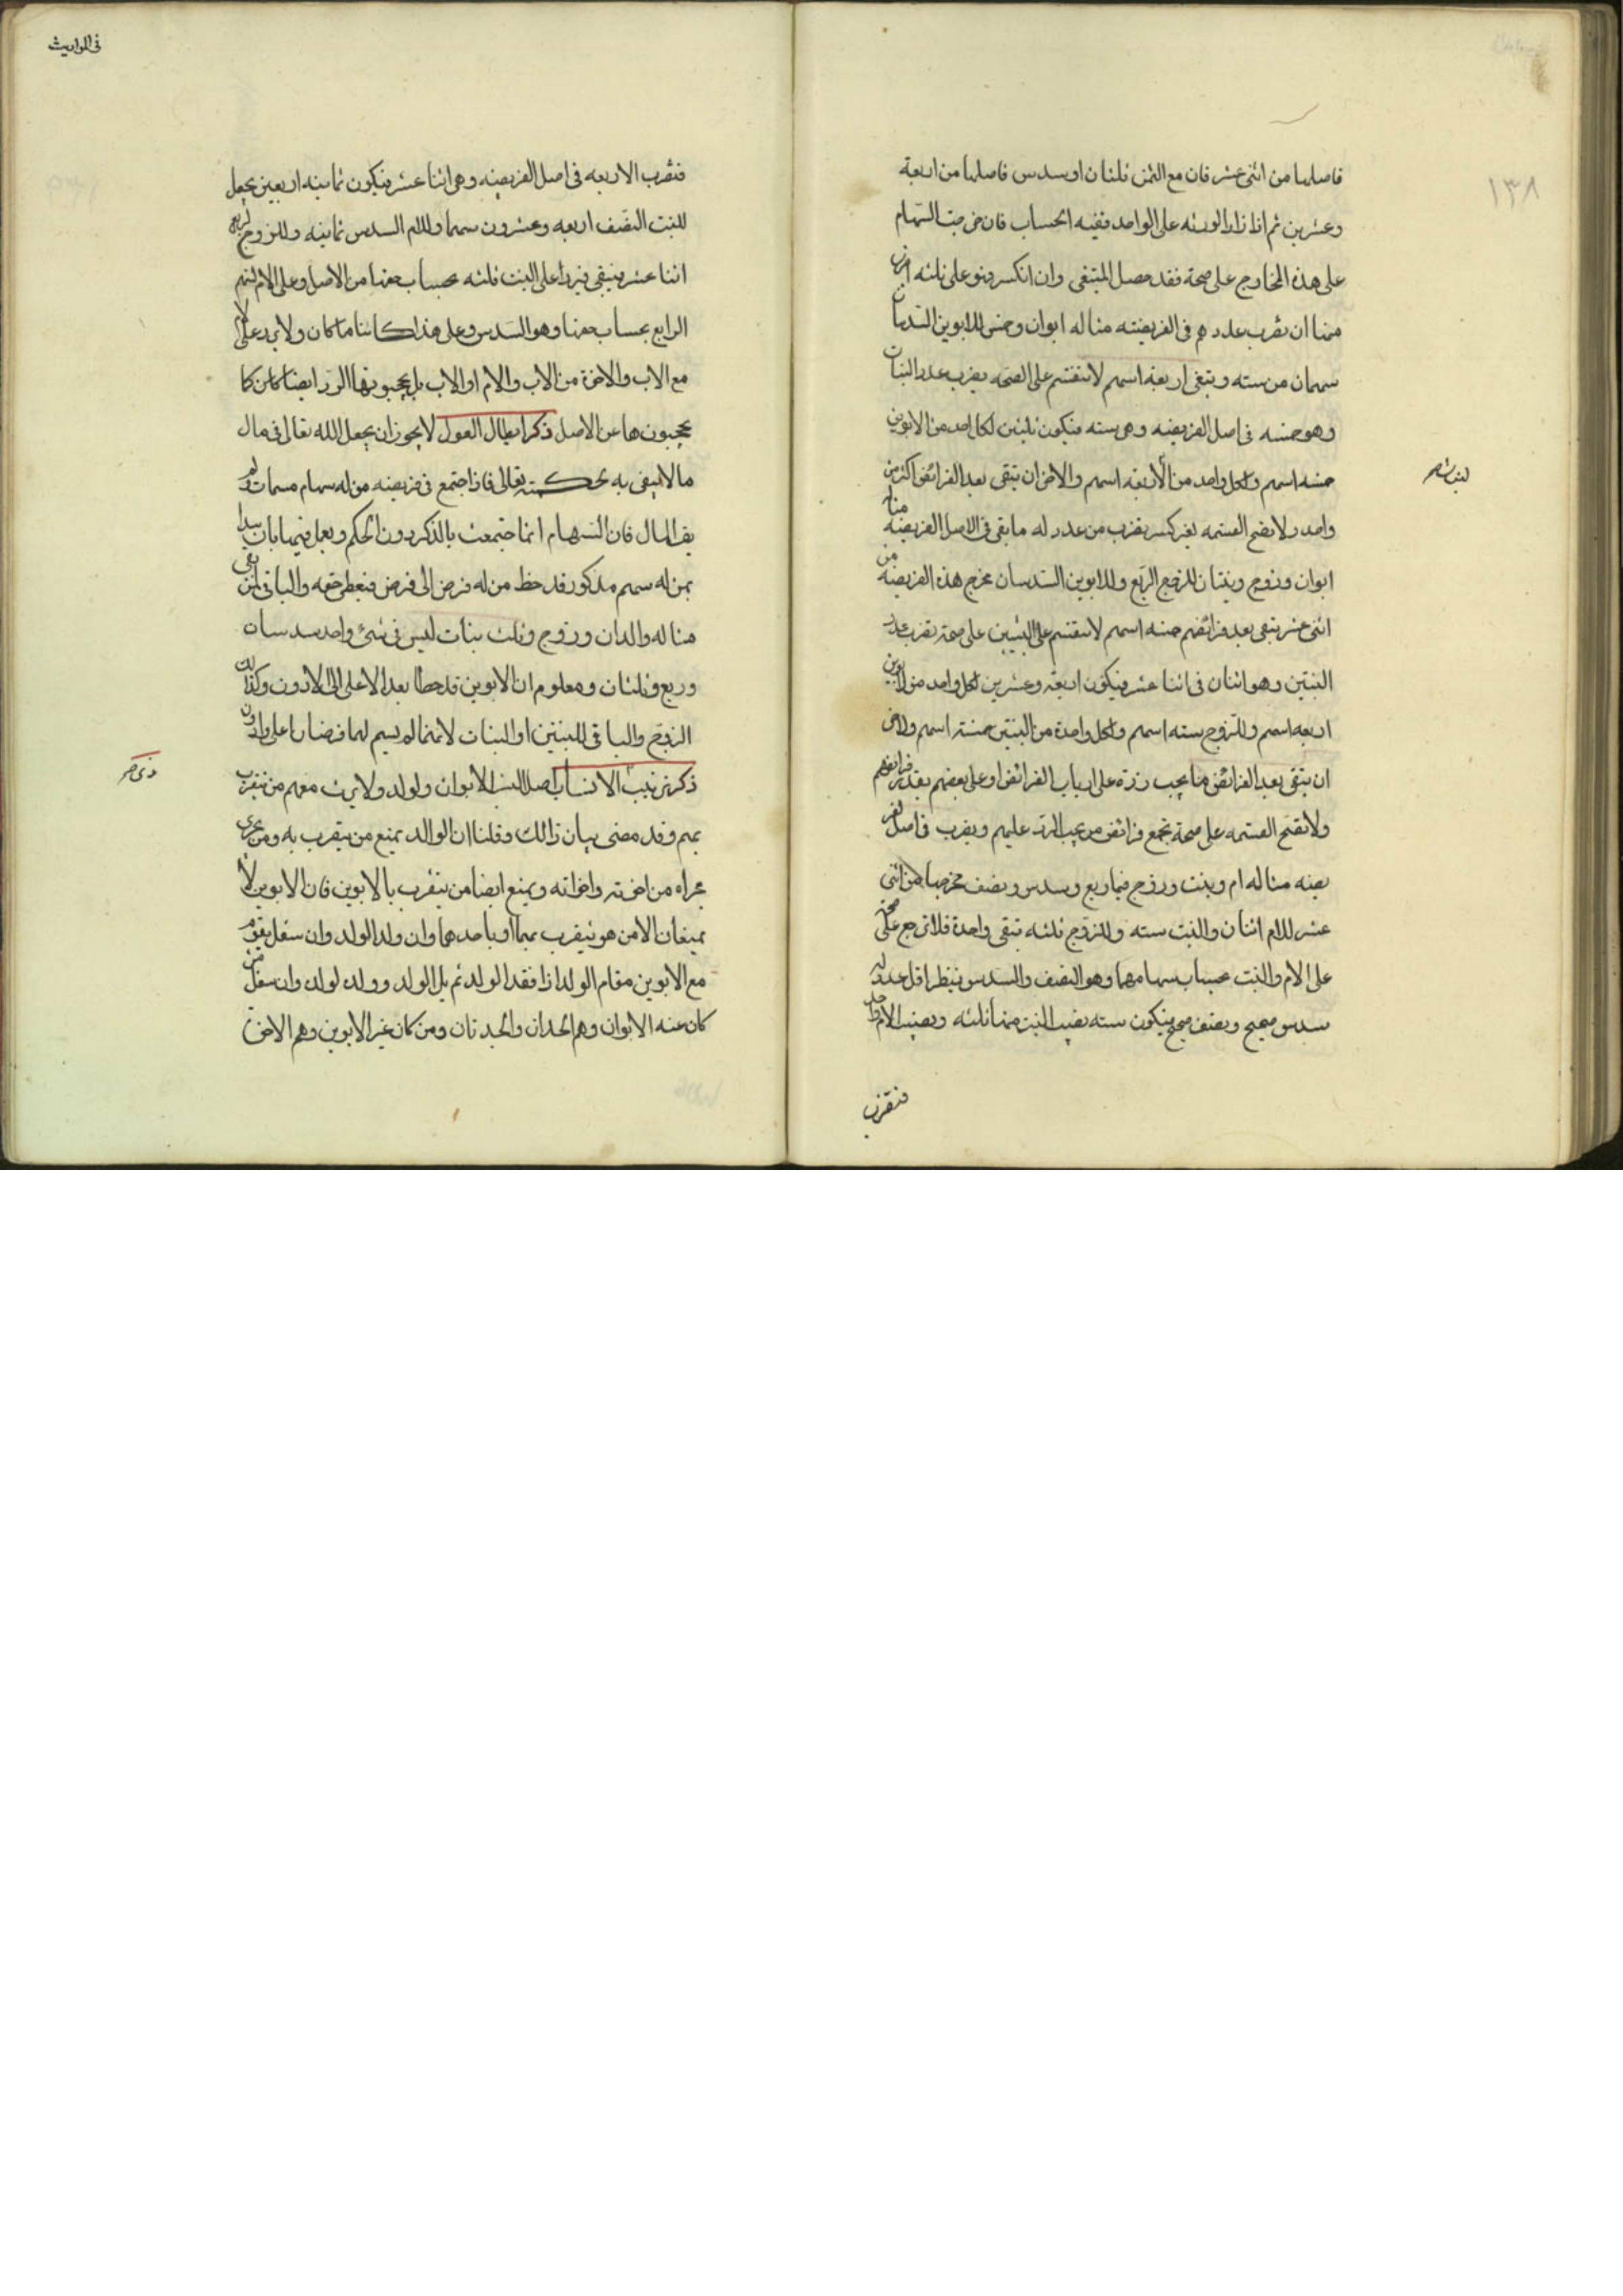 ١٣٨
فاصلها من اثنى عشر فان مع الثمن ثلثان او سدس فاصلها من اربعة
وعشرين ثم اذا زاد الورثه على الواحد ففيه الحساب فان خرجت السهام
على هذه المخارج على صحة فقد حصل المبتغى وان انكسر فهو على ثلثه اضرب
منها ان تضرب عددهم فى الفريضة مثاله ابوان وخمس للابوين السدسان
سهمان من سته ويبقى اربعة اسهم لا تنقسم على الصحه يضرب عدد البنات
وهو خمسه فى اصل الفريضه وهى سته فيكون ثلثين لكل واحد من الابوين
خمسه اسهم ولكل واحد من الاربعه اسهم والاخر ان تبقى بعد الفرائض اكثر من
واحد ولا يصح القسمه بغير كسر يضرب من عدد له ما بقى فى الاصل الفريضه مثاله
ابوان وزوج وبنتان للزوج الربع وللابوين السدسان مخرج هذه الفريضه من
اثنى عشر يبقى بعد فرائضهم خمسه اسهم لا ينقسم على البنتين على صحة يضرب عدد
البنتين وهو اثنان فى اثنا عشر فيكون اربعة وعشرين لكل واحد من الابوين
اربعه اسهم وللزوج سته اسهم ولكل واحدة من البنتين خمسة اسهم والاخر
ان يبقى بعد الفرائض ما يجب رده على ارباب الفرائض او على بعضهم بقدر فرائضهم
ولا تصح القسمه على صحة تجمع فرائض من يجب الرد عليهم ويضرب فى اصل الفر
يضه مثاله ام وبنت وزوج فيها ربع وسدس ونصف مخرجها من اثنى
عشر للام اثنان وللبنت سته وللزوج ثلثه تبقى واحدة فلا ترجع على صحة
على الام والبنت بحساب سهامهما وهو النصف والسدس فينظر اقل عدد له
سدس صحيح ونصف صحيح فيكون سته نصيب البنت منها ثلثه ونصيب الام واحد
فنضرب
فى المواريث
فنضرب الاربعه فى اصل الفريضه وهى اثنا عشر فيكون ثمانيه اربعين يجعل
للبنت النصف اربعه وعشرون سهما وللام السدس ثمانيه وللزوج الربع
اثنا عشر فيبقى فيرد على البنت ثلثه بحساب حقها من الاصل وعلى الام السهم
الرابع بحساب حقها وهو السدس وعلى هذا كائنا ما كان ولا يرد على الام
مع الاب والاخوة من الاب والام او الاب بل يحجبونها الرد ايضا كما
يحجبونها عن الاصل ذكر ابطال العول لا يجوز ان يجعل الله تعالى فى مال
ما لا ينفى به حكمته تعالى فاذا اجتمع فى فريضه من له سهام مسمات ولم
يف المال فان السهام انما اجتمعت بالذكر دون الحكم ويعمل فيها بان يبدا
بمن له سهم مذكور قد حظ من له فرض الى فرض فيعطى حقه والباقى لمن بقى
مثاله والدان وزوج وثلث بنات ليس فى شئ واحد سدسان
وربع وثلثان ومعلوم ان الابوين قد حطا بعد الاعلى الى الادون وكذلك
الزوج والباقى للبنتين او البنات لانهما لم يسم لهما فرضا اعلى وادون
ذكر ترتيب الانساب اصل النسب الابوان ولولد ولا يرث معهم من يتقرب
بهم وقد مضى بيان ذالك وقلنا ان الوالد يمنع من يتقرب به ومن يجرى
مجراه من اخوته واخواته ويمنع ايضا من يتقرب بالابوين فان الابوين لا
يمنعان الا من هو يتقرب بهما او باحدهما وان ولد الولد وان سفل يقوم
مع الابوين مقام الولد اذا فقد الولد ثم يلى الولد وولد لولد وان سفل من
كان عنه الابوان وهم الجدان والجدتان ومن كان غير الابوين وهم الاخوة